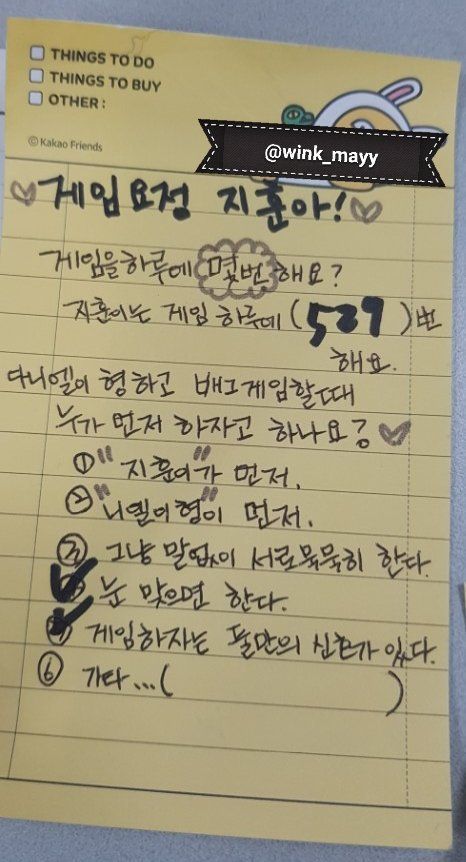 THINGS TO DO
THINGS TO BUY
OTHER :
© Kakao Friends
@wink_mayy
게임요정 지훈아!
게임을하루에 몇번 해요?
지훈이는 게임 하루에 (529)번
해요.
다니엘이 형하고 배그게임할때
누가 먼저 하자고 하나요?
① "지훈이"가 먼저.
② "니엘이형"이 먼저.
③ 그냥 말없이 서로묵묵히 한다.
④ 눈 맞으면 한다.
⑤ 게임하자는 둘만의 신호가 있다.
⑥ 기타...( )